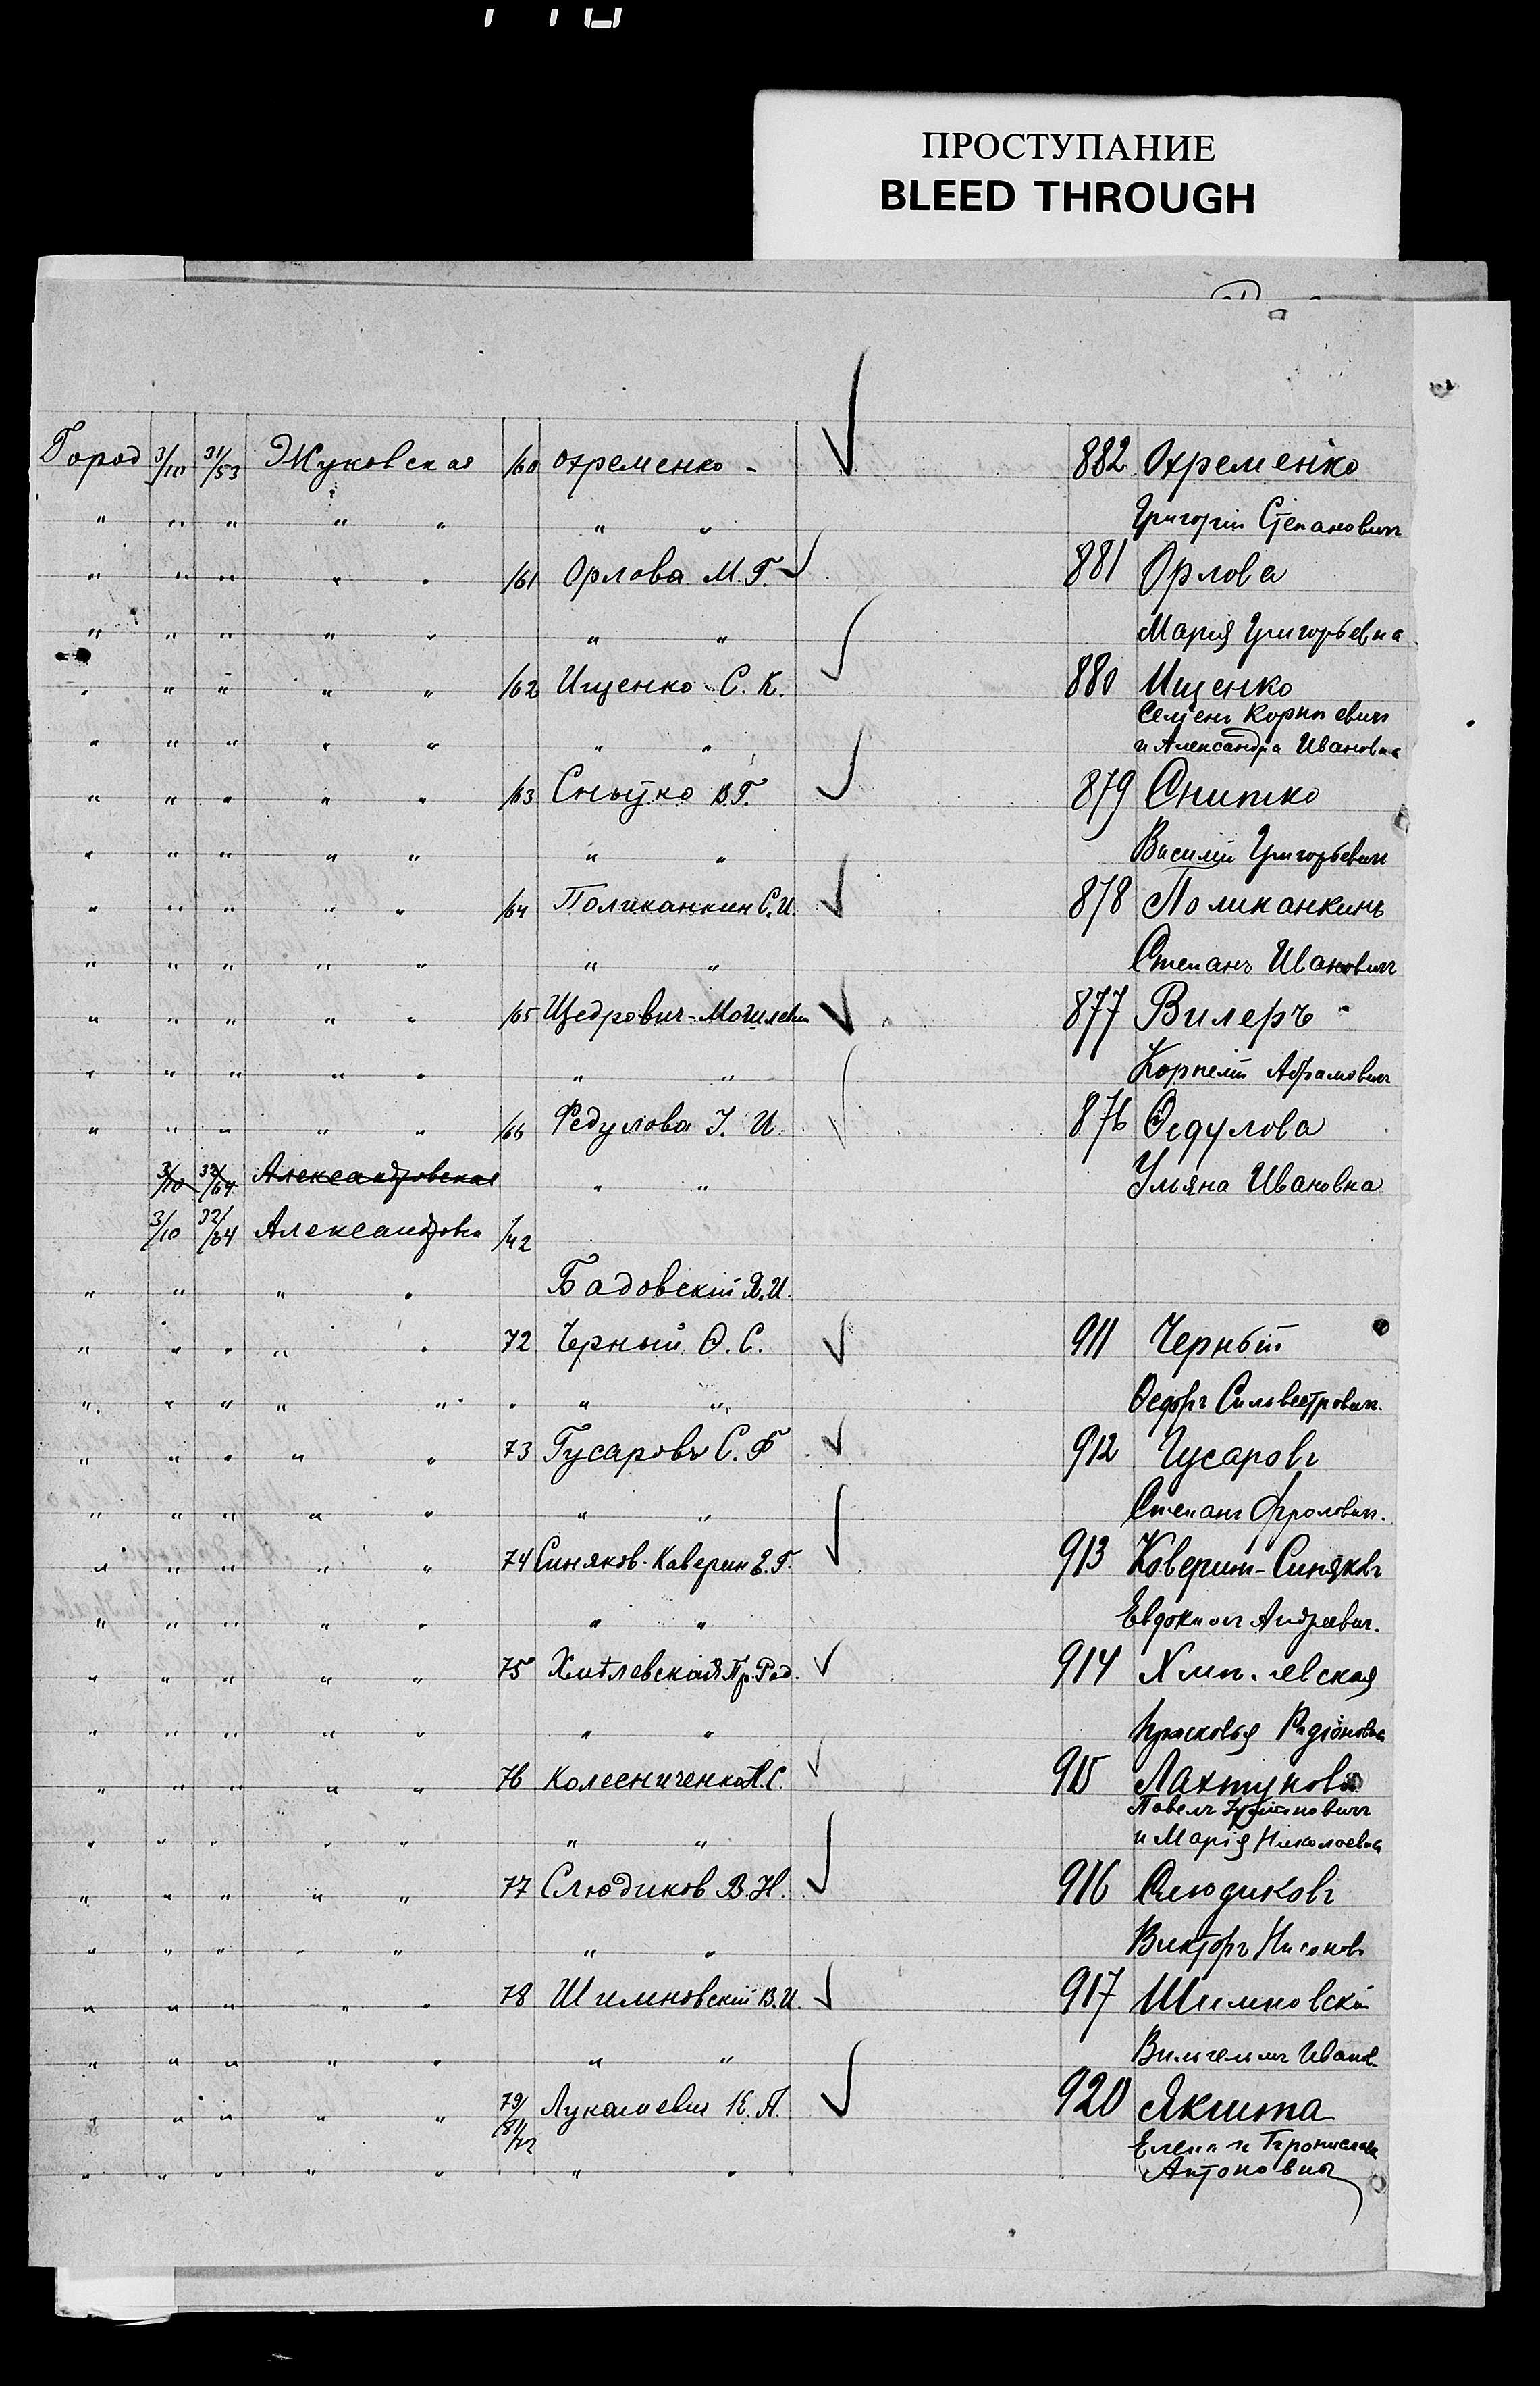 ПРОСТУПАНИЕ
BLEED THROUGH
Город 3/10 31/53 Жуковская /60 Охременко - 882 Охременко
" " " " " " " Григорій Степановичъ
" " " " " /61 Орлова М. Г. 881 Орлова
" " " " " " " Марія Григорьевна
" " " " " /62 Ищенко С. К. 880 Ищенко
Семенъ
" " " " " " " и Александра Ивановна
" " " " " /63 В. Г. 879 Снитко
" " " " " " " Василій Григорьевичъ
" " " " " /64 Поликанкин С. И. 878 Поликанкинъ
" " " " " " " Степанъ Ивановичъ
" " " " " /65 Щедрович-Могилевич 877 Вилеръ
" " " " " " " Корнелій Абрамовичъ
" " " " " /66 Федулова У. И. 876 Ѳедулова
3/10 32/64 Александровская " " Ульяна Ивановна
3/10 32/64 Александровс /42
" " " " Бадовскій Я. И.
" " " " " 72 Черный Ѳ. С. 911 Черный
" " " " " " " Ѳедоръ Сильвестрович.
" " " " " 73 Гусаровъ С. Ф 912 Гусаровъ
" " " " " " " Степанъ Фролович.
" " " " " 74 Синяков-Каверин Е. Г. 913 Каверинъ-Синяковъ
" " " " " " " Евдокимъ Андреевич.
" " " " " 75 Хмѣлевская Пр. Род. 914 Хмѣлевская
" " " " " " " Прасковья Радіоновна
" " " " " 76 Колесниченко 915
Павелъ
" " " " " " " и Марія Николаевна
" " " " " 77 Слюдиков В. Н. 916 Слюдиковъ
" " " " " " " Викторъ
" " " " " 78 Шимновскій В. И. 917 Шимновскій
" " " " " " " Вильгельмъ Иванов
" " " " " 79/ Лукашевич К. А. 920 Якшта
/81/72 Елена и Бронислава
" " " " " " " Антоновны